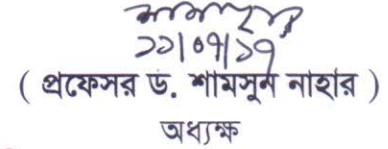 ১১|০৭|১৭
( প্রফেসর ড. শামসুন নাহার )
অধ্যক্ষ